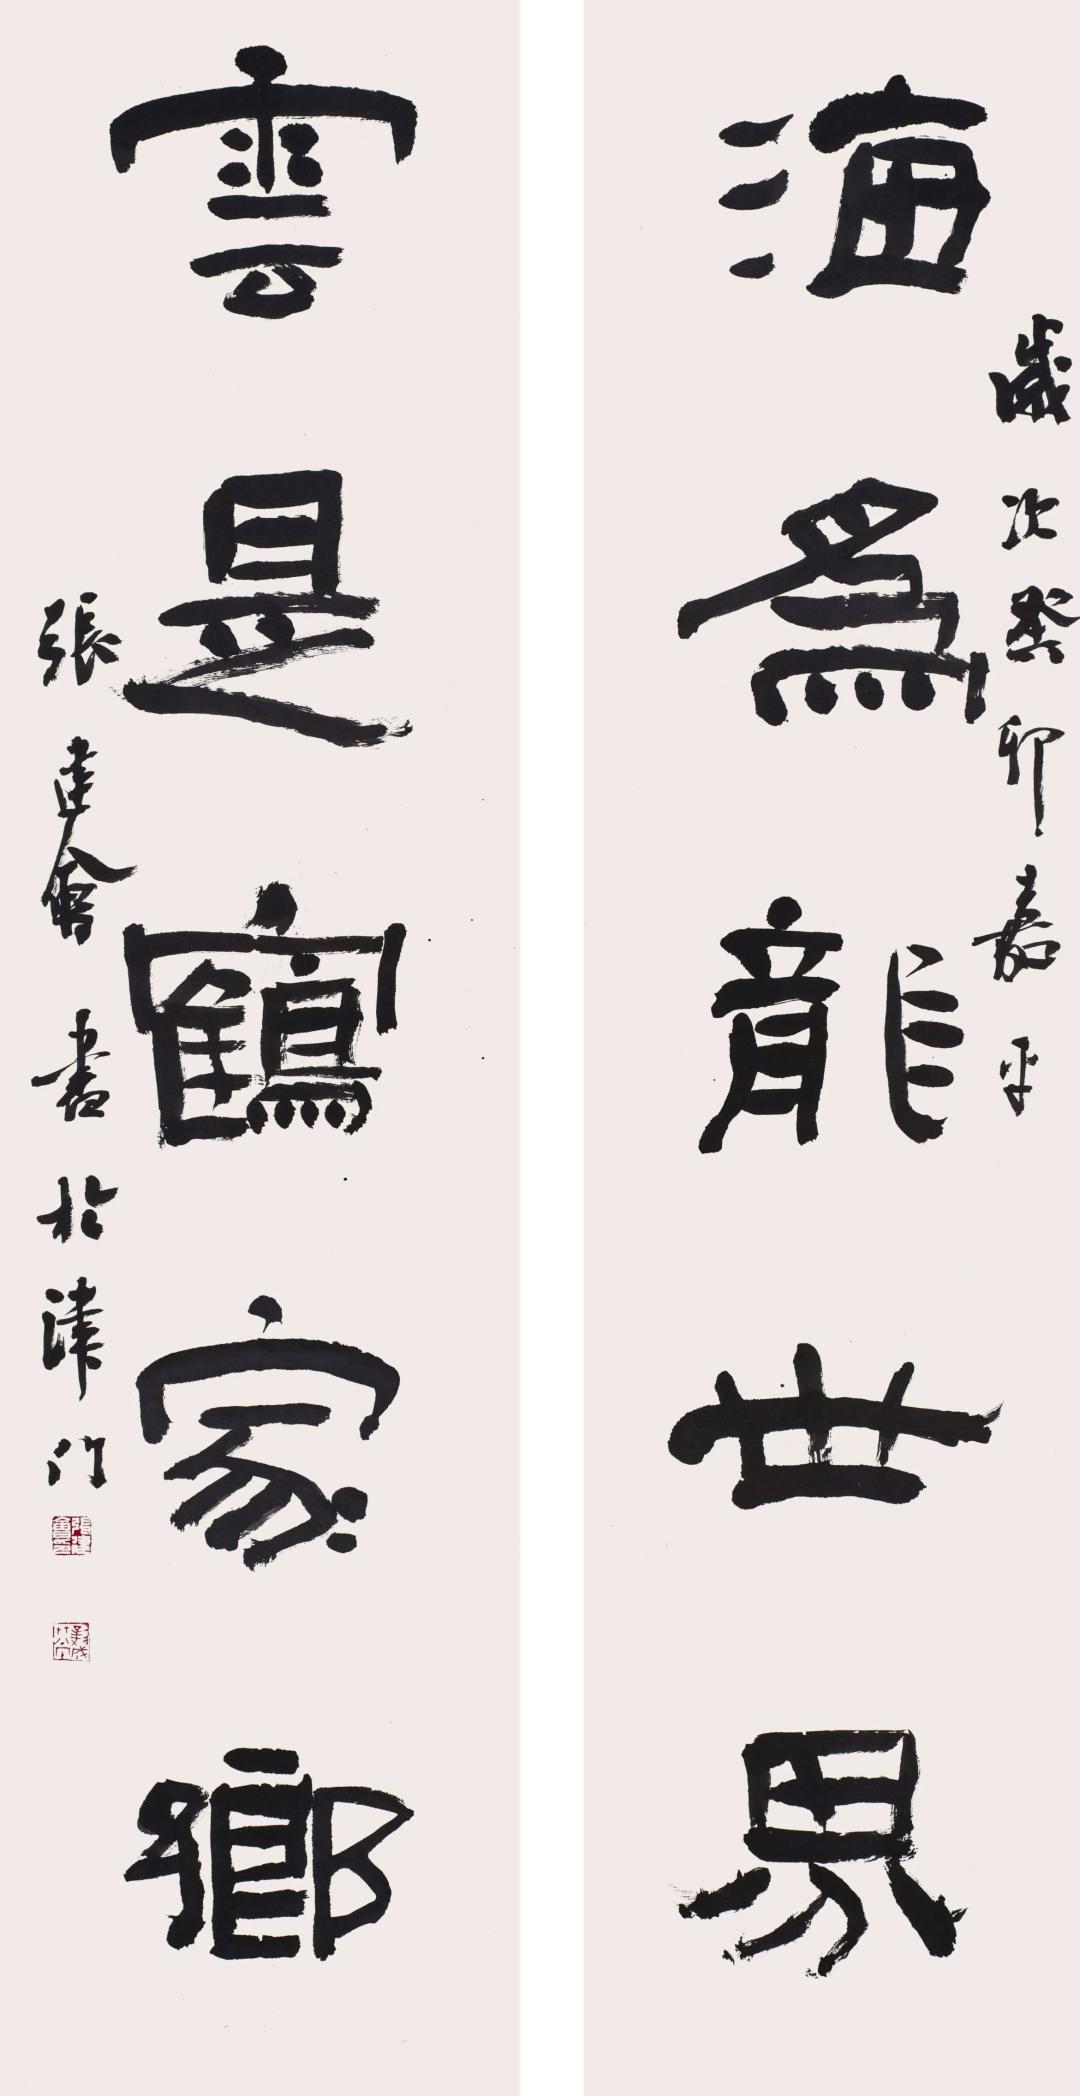 海為龍世界
歲次癸卯嘉平
雲是鶴家鄉
張建會書於津門